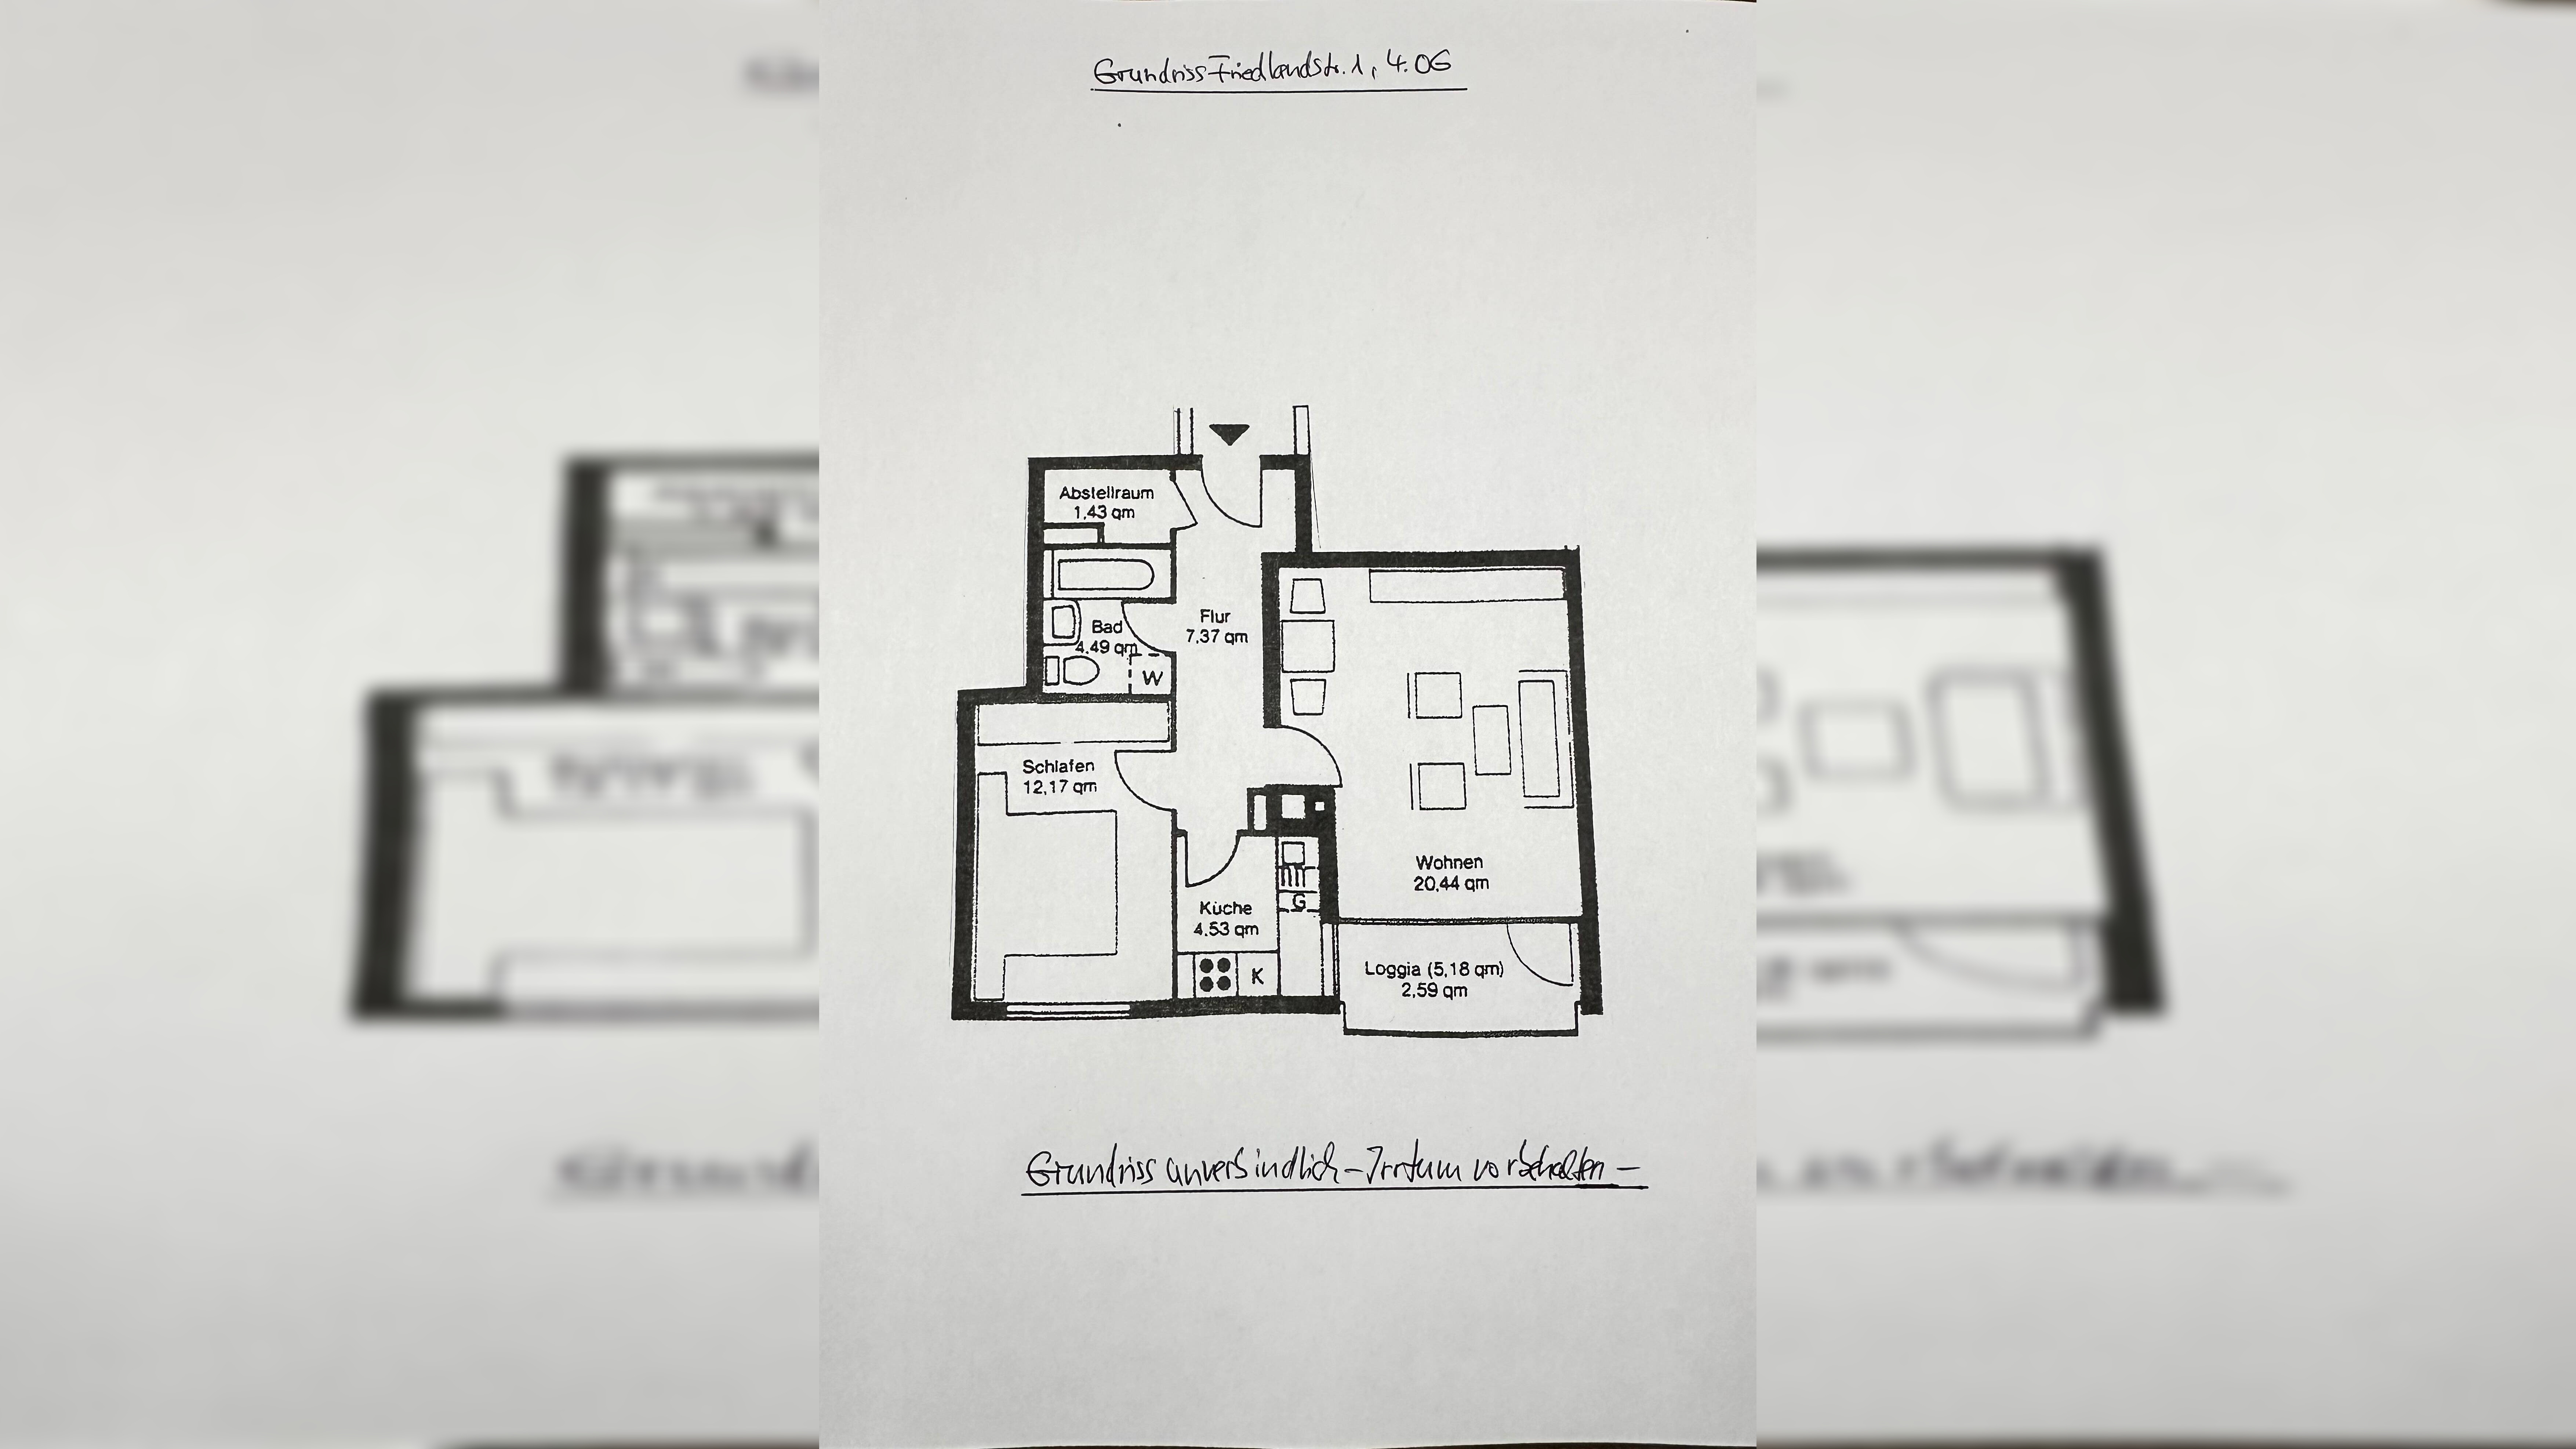 Grundriss Friedlandstr. 1, 4. OG
Abstellraum
1,43 qm
Bad
4,49 qm
W
Flur
7,37 qm
Schlafen
12,17 qm
Wohnen
20,44 qm
Küche
4,53 qm
G
K
Loggia (5,18 qm)
2,59 qm
Grundriss unverbindlich - Irrtum vorbehalten -